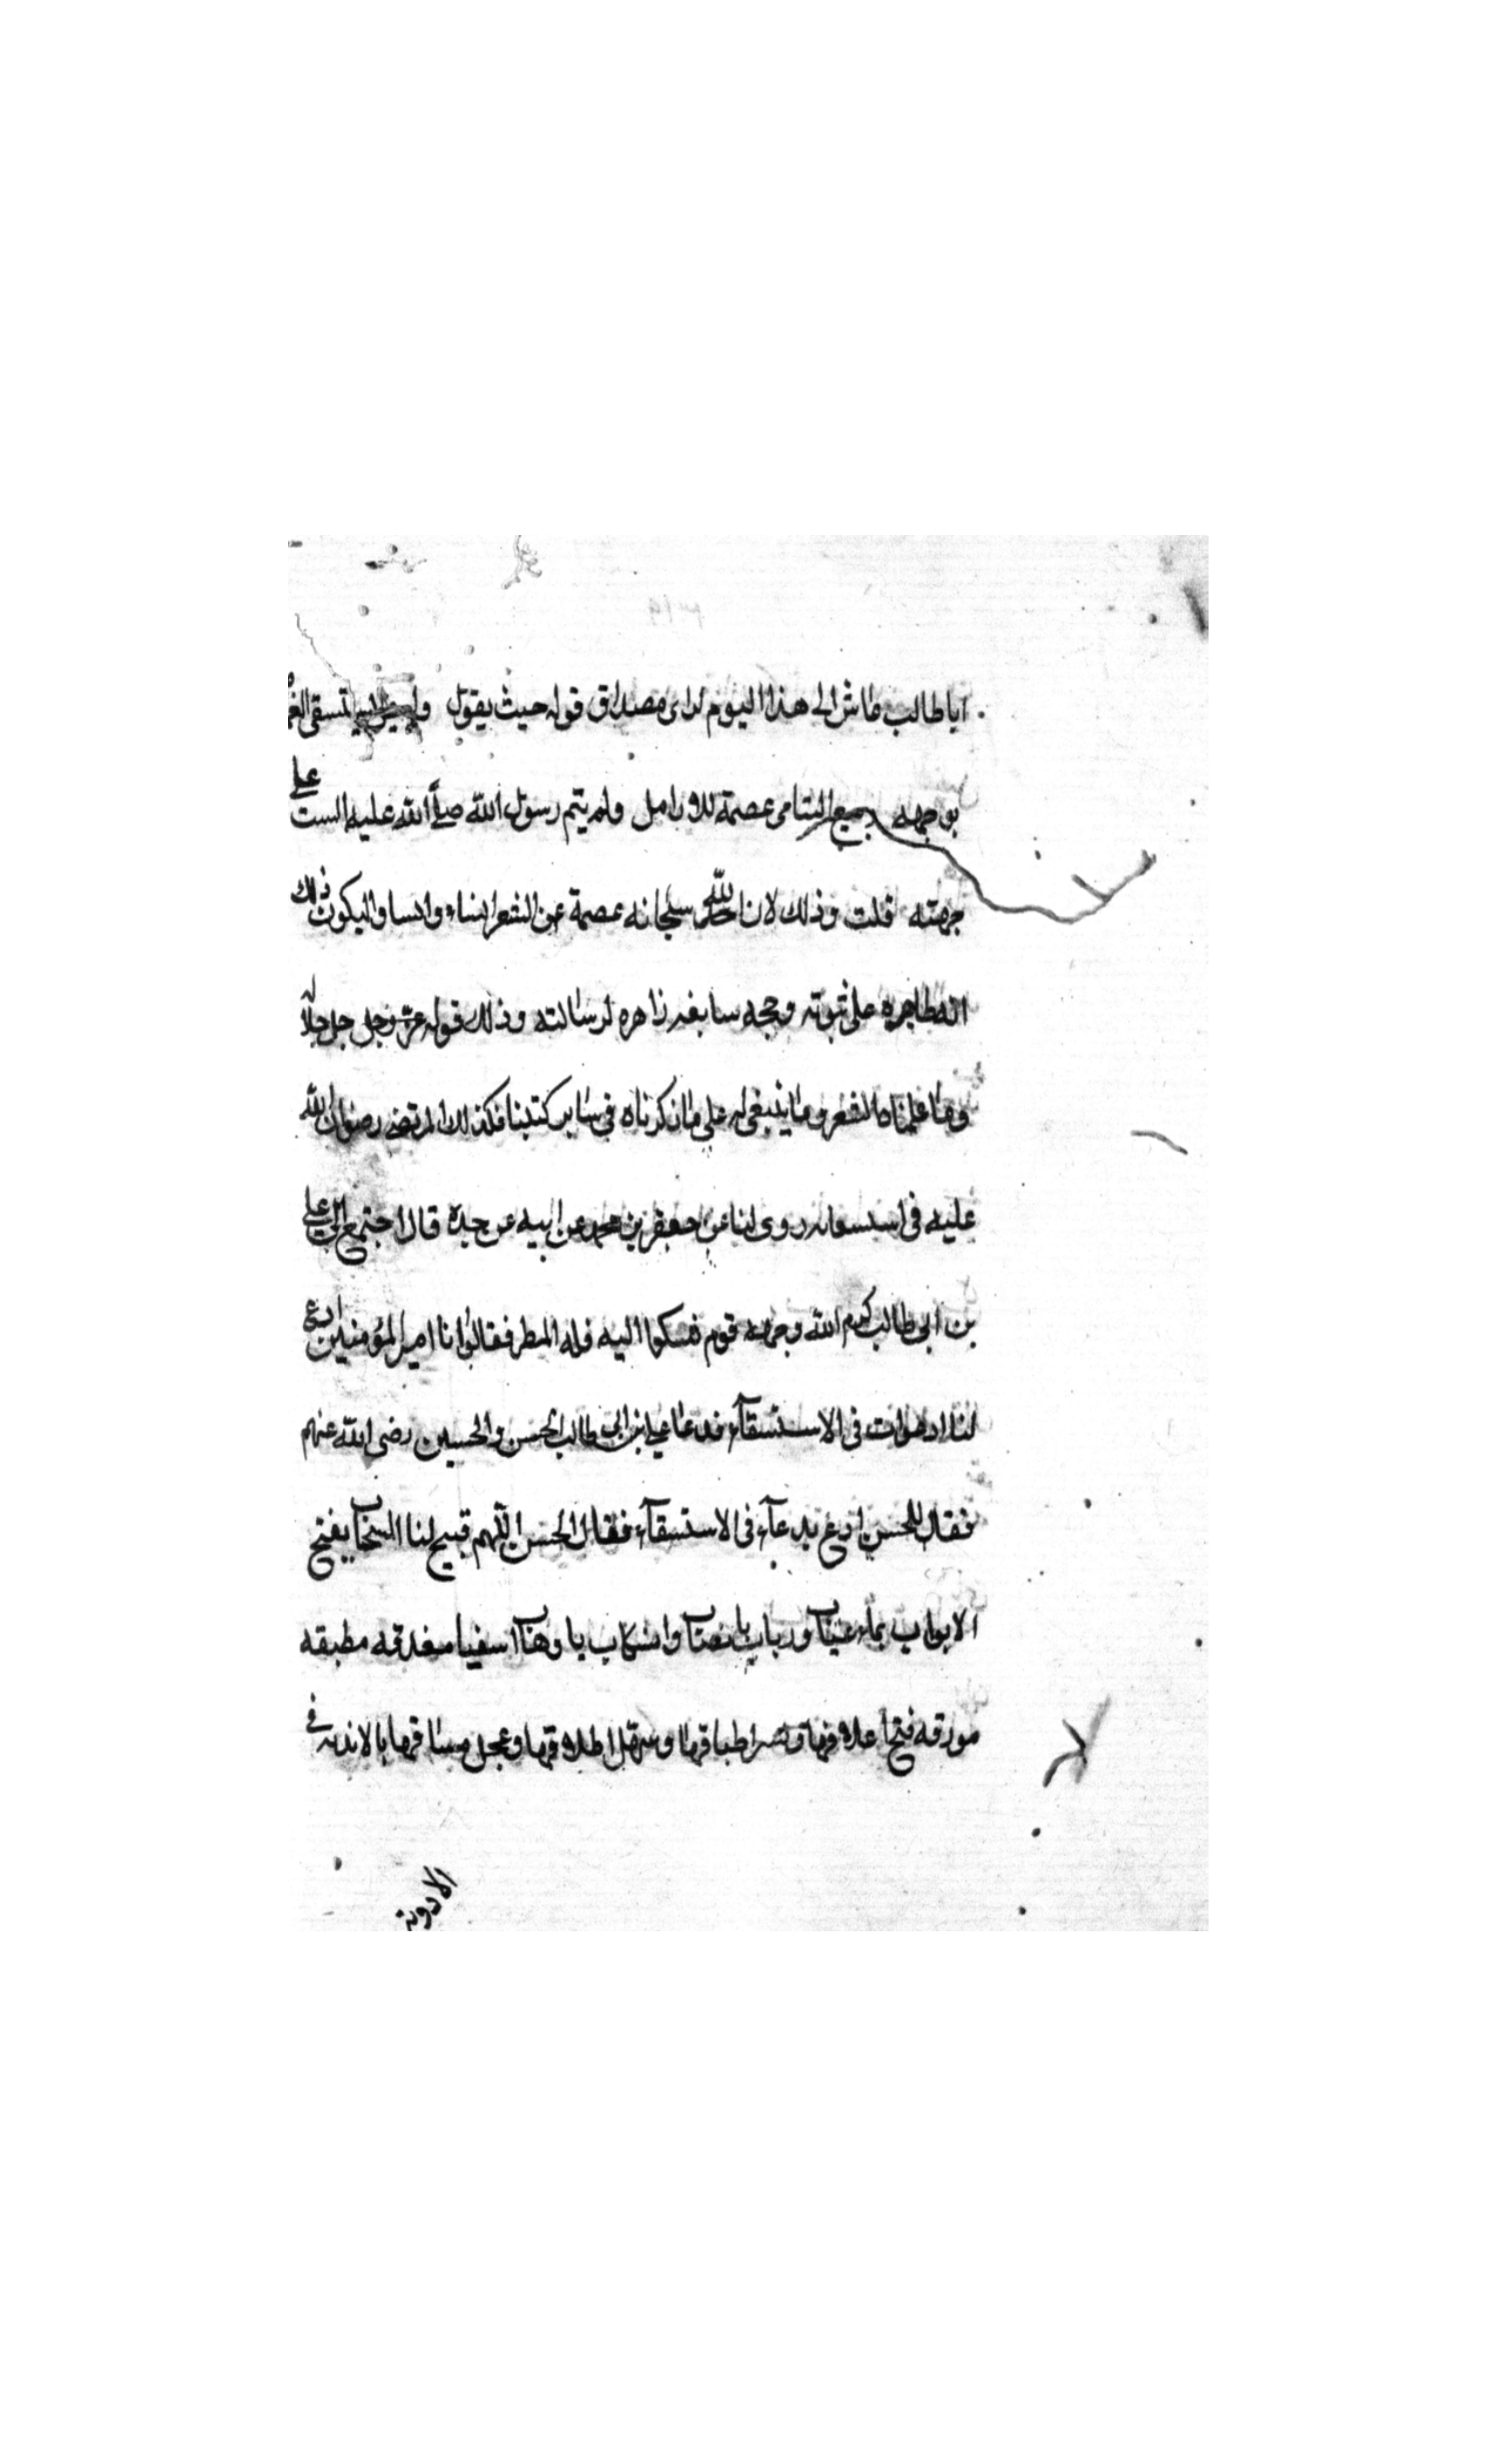 ابا طالب عاش الى هذا اليوم لراى مصداق قوله حيث يقول وابيض يستسقى الغمام
بوجهه ربيع اليتامى عصمة للارامل ولم يتم رسول الله صلى الله عليه البيت على
جهته قلت وذلك لان الله سبحانه عصمة عن الشعر انشاء وانشادا ليكون ذلك
انه طاهره على نبوته وحجه زاهره لرسالته وذلك قوله عز وجل جل جلاله
وما علمناه الشعر وما ينبغى له على ما ذكرناه فى ساير كتبنا فكذلك المرتضى رضوان الله
عليه فى روى لنا عن جعفر بن محمد عن ابيه عن جده قال اجتمع الى على
بن ابى طالب كرم الله وجهه قوم فشكوا اليه قله المطر فقالوا يا امير المؤمنين ادع
لنا فى الاستسقآء فدعا على ابن ابى طالب الحسن والحسين رضى الله عنهم
فقال للحسن ادع بدعآء فى الاستسقآء فقال الحسن اللهم هيج لنا السحاب بفتح
الابواب بماء عباب ورباب بانصباب وانسكاب يا وهاب اسقينا مغدقه مطبقه
مورقه فتح اغلاقها ويسر اطباقها وسهل اطلاقها وعجل سياقها بالاندية فى
الاودية